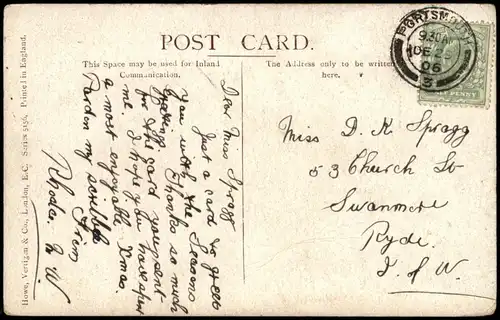 POST CARD.
This Space may be used for Inland
Communication.
The Address only to be written
here.
PORTSMOUTH
9.30AM
DE
06
3
PENNY
Howe, Vertigan & Co., London, E.C. Series 5156. Printed in England.
Dear Miss Spragg
Just a card to greet
you with the Seasons
Greeting Thanks so much
for the card you sent
me. I hope you have spent
a most enjoyable Xmas.
Pardon my scribble
From
Rhoda. N W.
Miss D. K Spragg
53 Church St
Swanmore
Ryde.
I. of W.